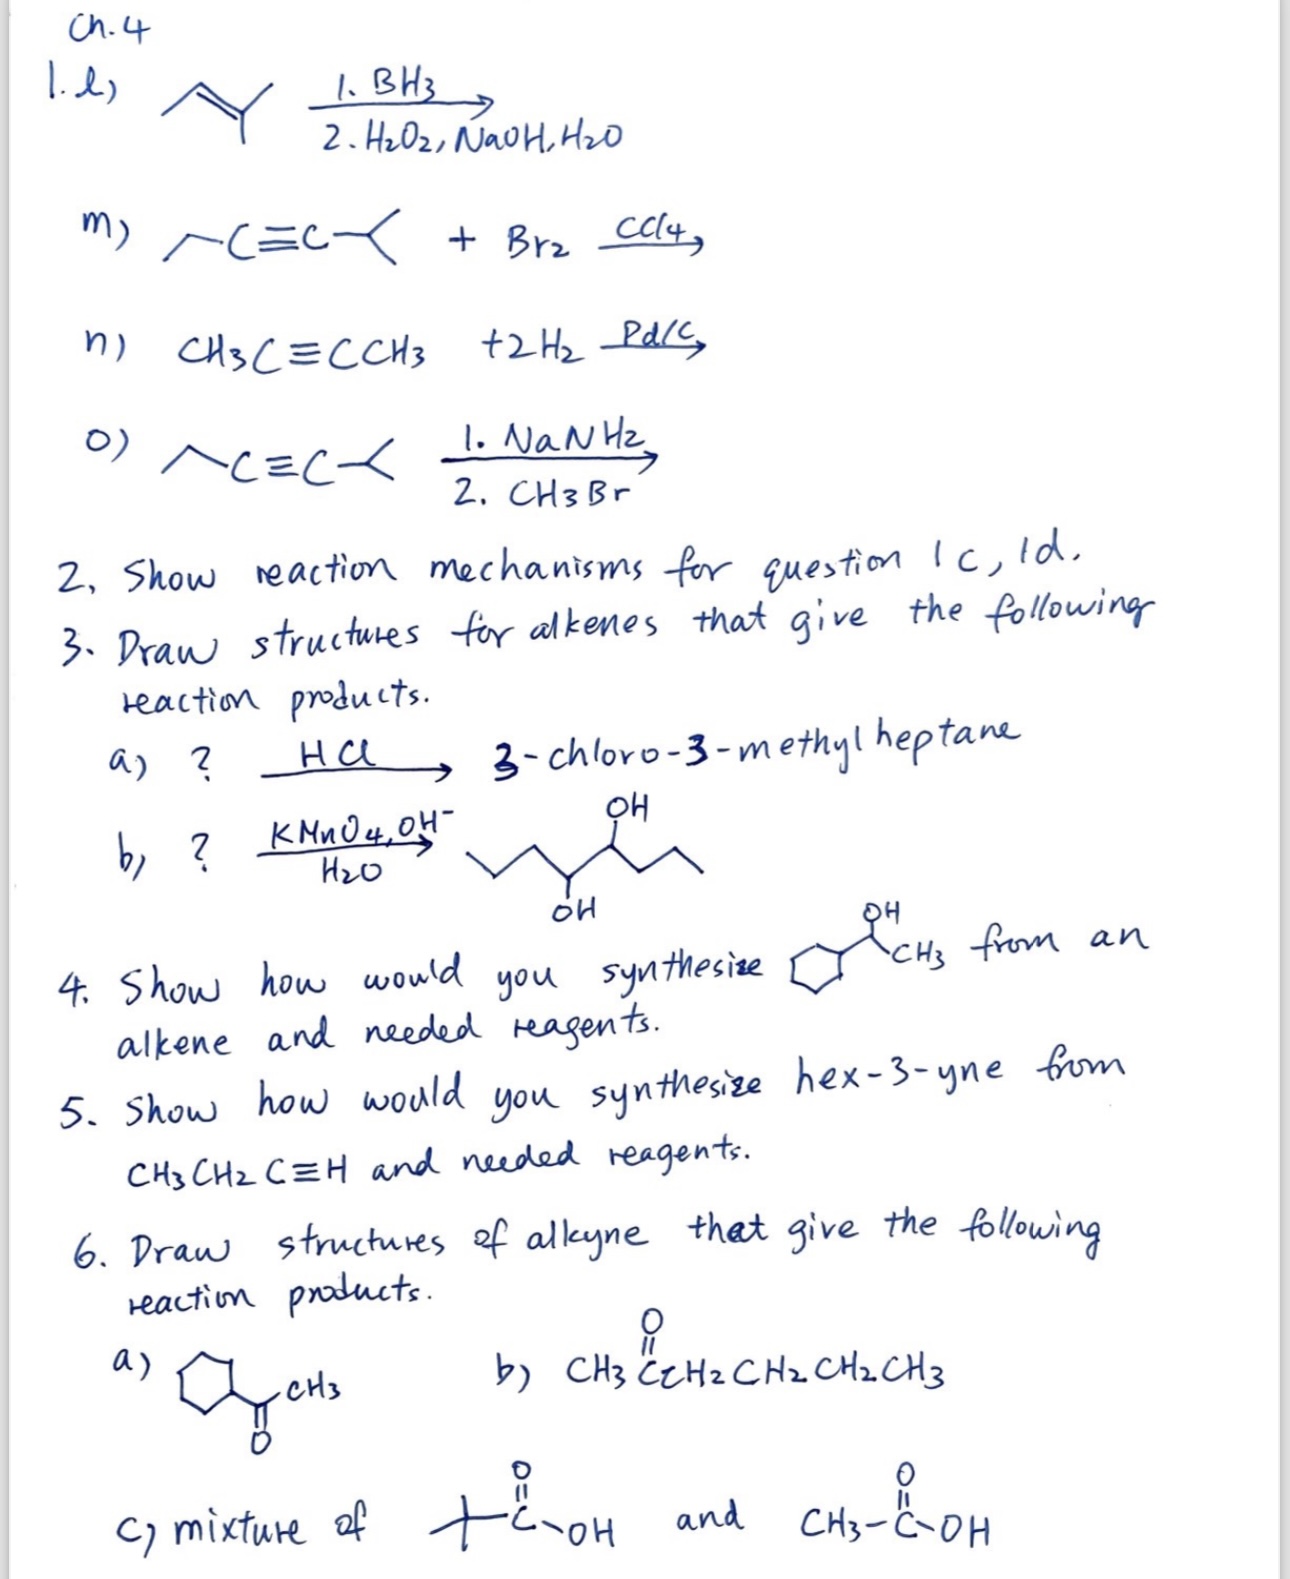 Ch. 4
1. l) 1. BH3
2. H2O2, NaOH, H2O
m) C≡C + Br2 CCl4
n) CH3C≡CCH3 +2H2 Pd/C
o) C≡C 1. NaNH2
2. CH3Br
2, Show reaction mechanisms for question 1c, 1d.
3. Draw structures for alkenes that give the following
reaction products.
a) ? HCl 3-chloro-3-methylheptane
b) ? KMnO4, OH-
H2O
OH
OH
OH
4. Show how would you synthesize CH3 from an
alkene and needed reagents.
5. Show how would you synthesize hex-3-yne from
CH3CH2C≡H and needed reagents.
6. Draw structures of alkyne that give the following
reaction products.
a) CH3
O
O
b) CH3CCH2CH2CH2CH3
O O
c) mixture of C-OH and CH3-C-OH